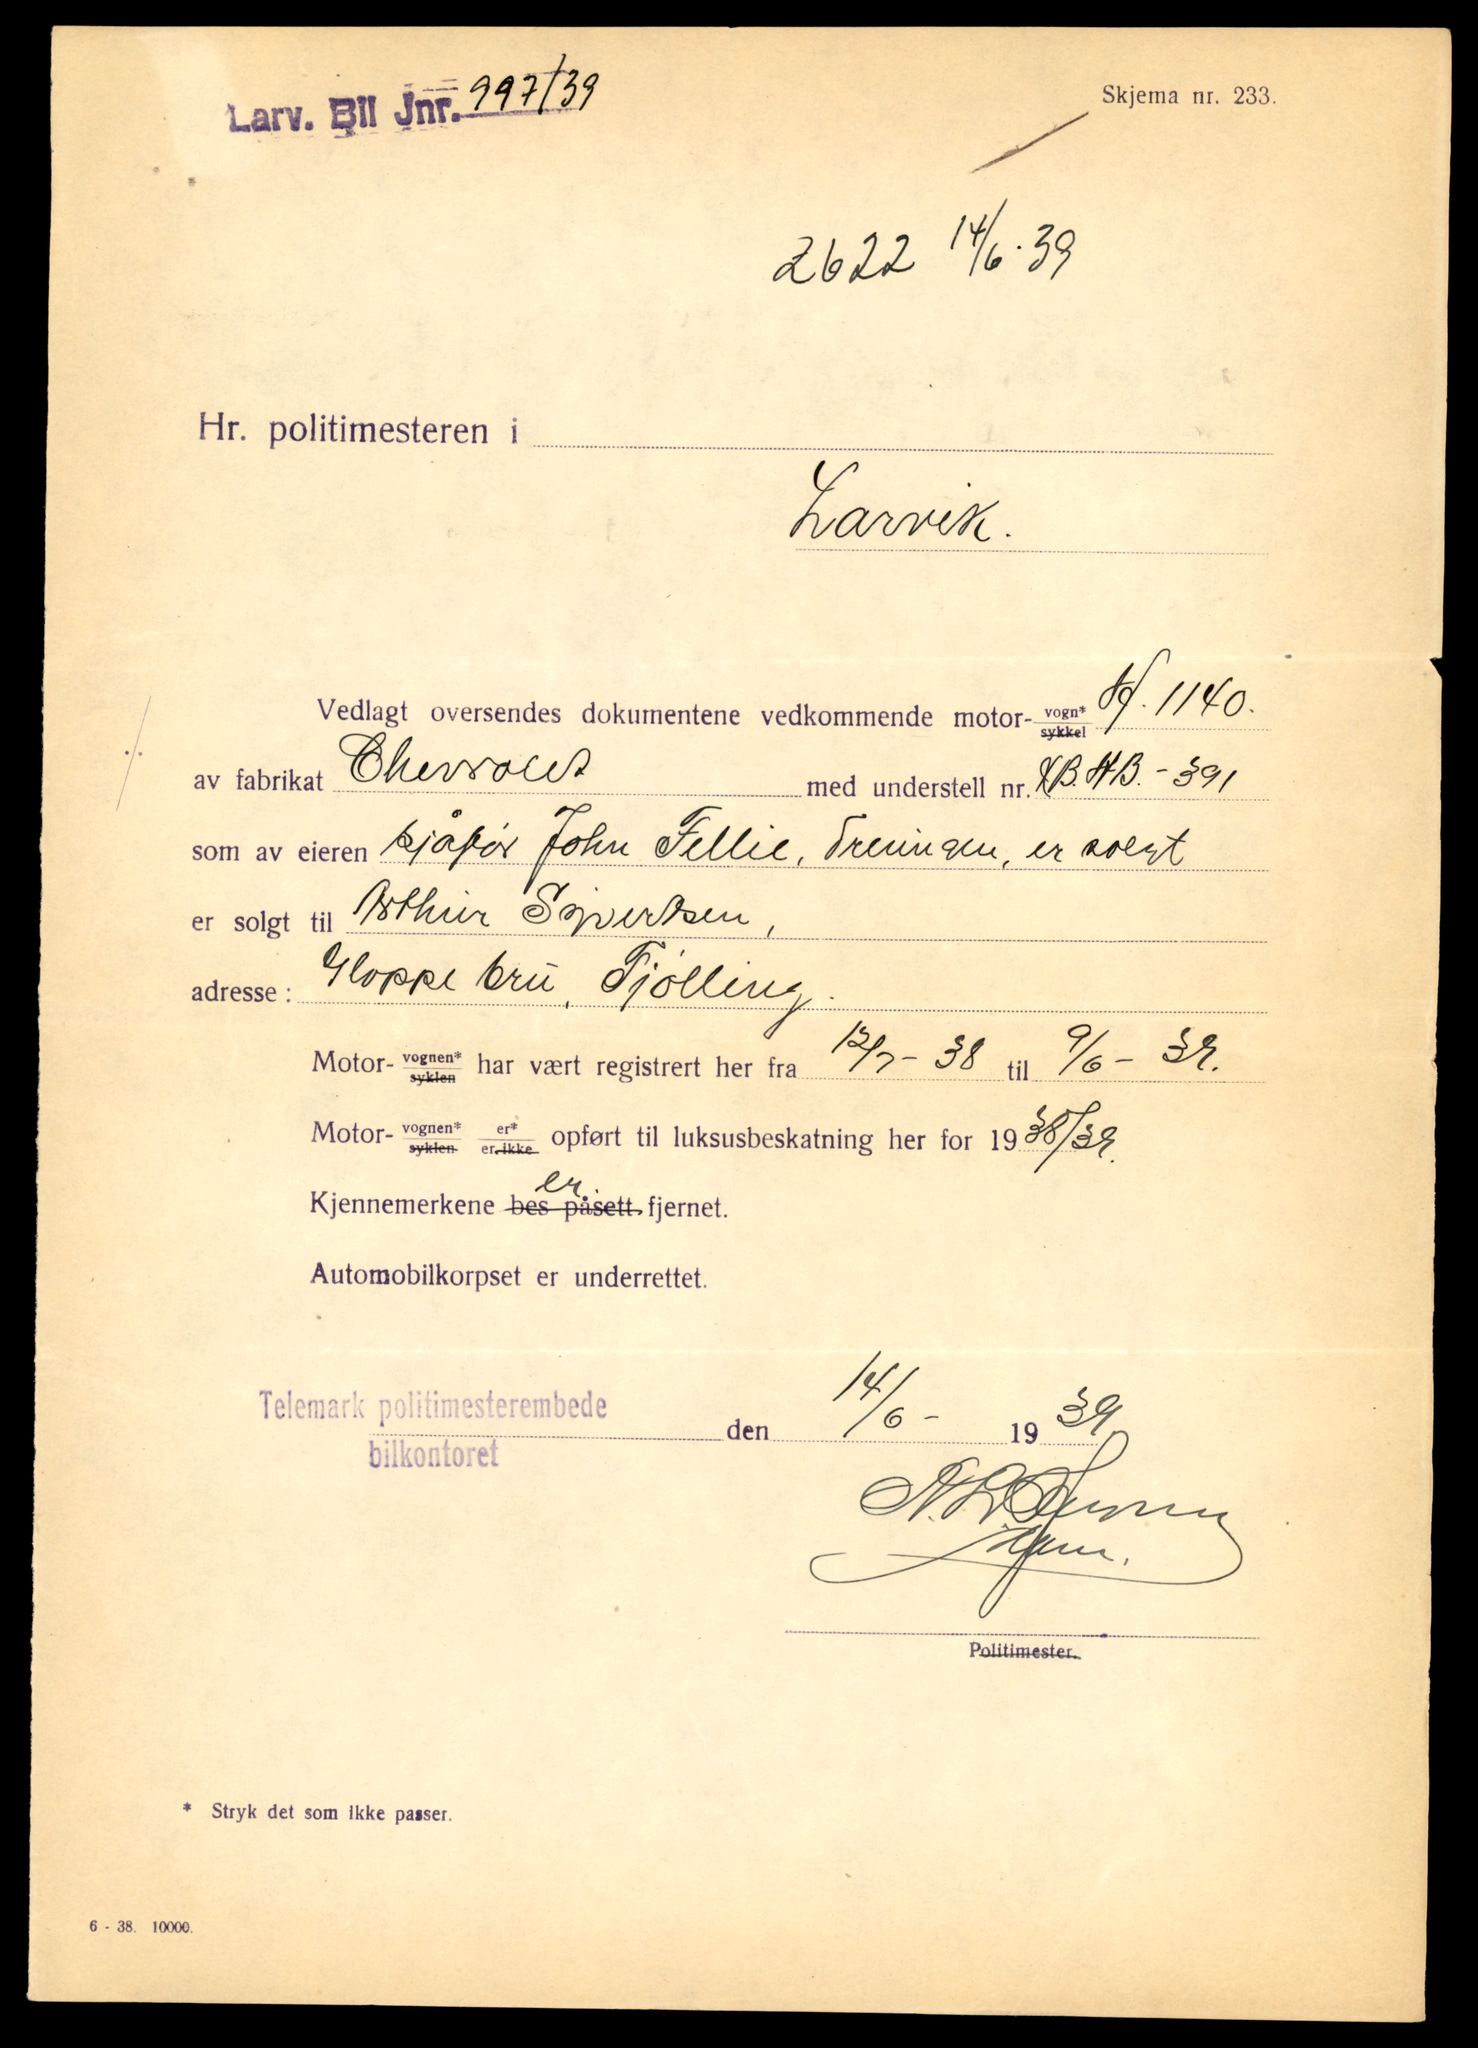 Larv. Bil Jnr. 997/39
Skjema nr. 233.
2622 14/6.39
Hr. politimesteren i
Larvik.
Vedlagt oversendes dokumentene vedkommende motor- vogn* sykkel H. 1140.
av fabrikat Chevrolet med understell nr. XB.HB.-391
som av eieren sjåfør John Tellie, Treungen, er solgt
er solgt til Arthur Sivertsen,
adresse: Kloppe bru, Tjølling.
Motor- vognen* syklen har vært registrert her fra 12/7-38 til 9/6-39.
Motor- vognen* syklen er* er ikke opført til luksusbeskatning her for 1938/39.
er
Kjennemerkene bes påsett fjernet.
Automobilkorpset er underrettet.
Telemark politimesterembede
bilkontoret
den 14/6- 1939
Politimester.
* Stryk det som ikke passer.
6 - 38. 10000.